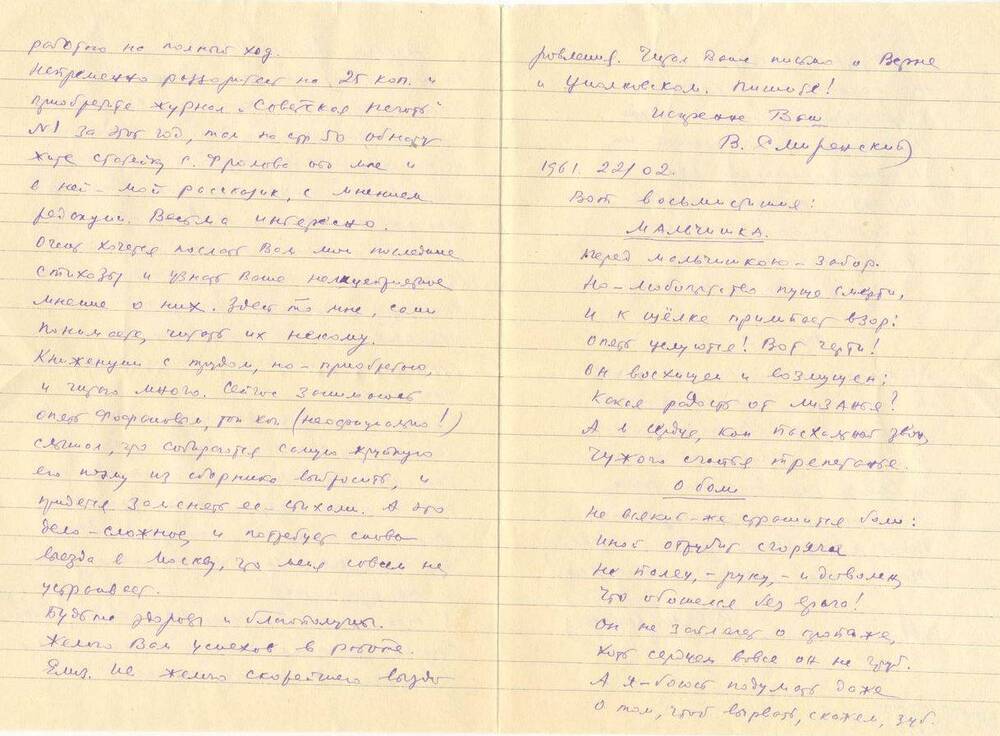 работаю на полный ход.
Непременно разоритесь на 25 коп. и
приобретите журнал „Советская печать"
№1 за этот год, там на стр 50 обнару
жите статейку С. Фролова обо мне и
в ней – мой рассказик, с мнением
редакции. Весьма интересно.
Очень хочется послать Вам мои последние
стихозы и узнать Ваше нелицеприятное
мнение о них. Здесь то мне, сами
понимаете, читать их некому.
Книженции с трудом, но – приобретаю,
и читаю много. Сейчас занимаюсь
опять Фофановым, так как (неофициально!)
слышал, что собираются самую крупную
его поэму из сборника выбросить, и
придется заменять ее – стихами. А это
дело – сложное, и потребует снова
выезда в Москву, что меня совсем не
устраивает.
Будьте здоровы и благополучны.
Желаю Вам успехов в работе.
Елиз. Ив. желаю скорейшего выздо
ровления. Читал Ваше письмо о Верне
и Циолковском. Пишите!
Искренне Ваш
В. Смиренский
1961. 22/02.
Вот восьмистишия:
МАЛЬЧИШКА.
Перед мальчишкою – забор.
Но – любопытство пуще смерти,
И к щёлке припадает взор:
Опять целуются! Вот черти!
Он восхищен и возмущен:
Какая радость от лизанья?
А в сердце, как пасхальный звон,
Чужого счастья трепетанье.
О боли
Не всякий – же страшится боли:
Иной отрубит сгоряча
Не палец, – руку, – и доволен,
Что обошелся без врача!
Он не заплачет о пропаже,
Хоть сердцем вовсе он не груб.
А я – боюсь подумать даже
О том, чтоб вырвать, скажем, зуб.